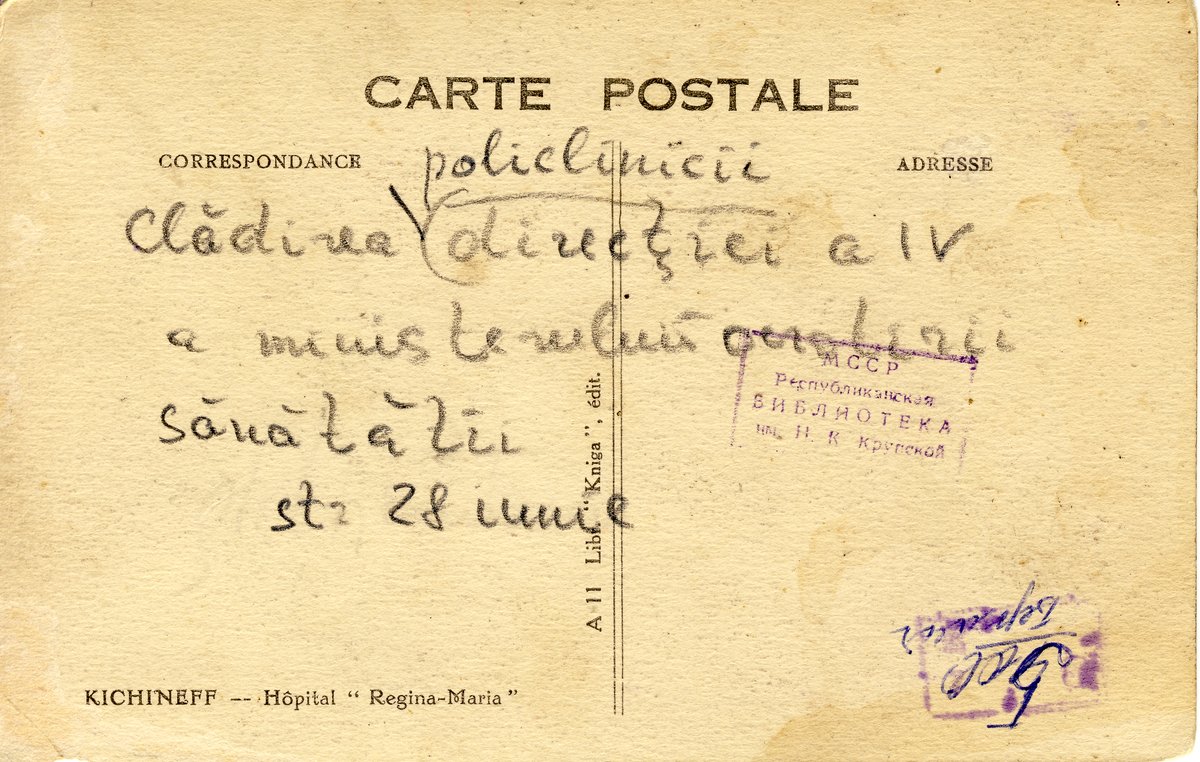 CARTE POSTALE
CORRESPONDANCE
ADRESSE
policlinicii
Clădirea direcţiei a IV
a ministerului ocrotirii
sănătăţii
str 28 iunie
МССР
Республиканская
БИБЛИОТЕКА
им. Н. К Крупской
A 11 Libr. "Kniga", édit.
KICHINEFF — Hôpital "Regina-Maria"